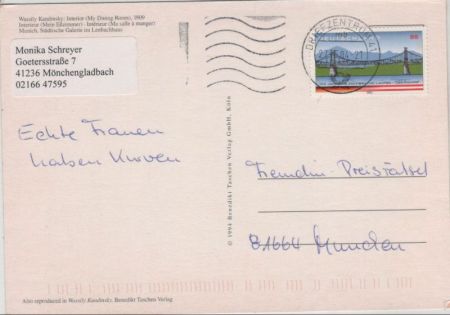 Wassily Kandinsky: Interior (My Dining Room), 1909
Interieur (Mein Eßzimmer) · Intérieur (Ma salle à manger)
Munich, Städtische Galerie im Lenbachhaus
Monika Schreyer
Goetersstraße 7
41236 Mönchengladbach
02166 47595
BRIEFZENTRUM 41
DEUTSCHLAND
Echte Frauen
haben Kurven
© 1994 Benedikt Taschen Verlag GmbH, Köln
Freundin-Preisrätsel
81664 München
Also reproduced in Wassily Kandinsky, Benedikt Taschen Verlag